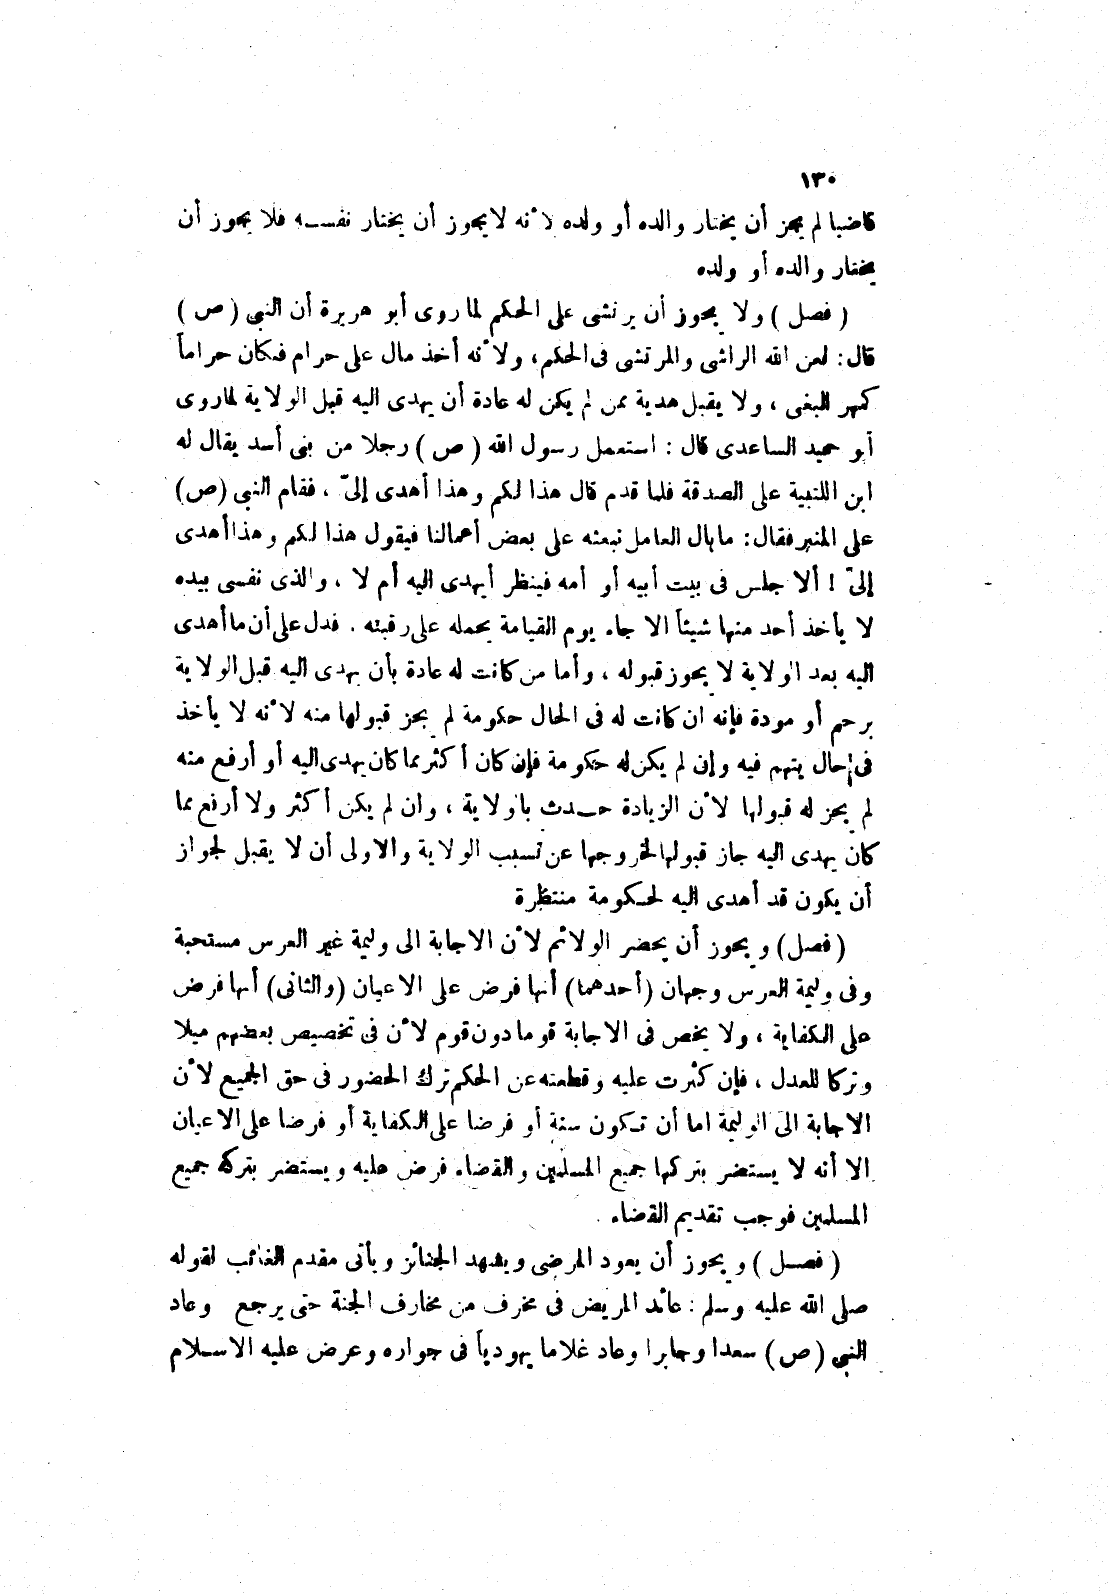 ١٣٠
قاضيا لم يجز أن يختار والده أو ولده لأنه لا يجوز أن يختار نفسه فلا يجوز أن
يختار والده أو ولده
( فصل ) ولا يجوز أن يرتشى على الحكم لما روى أبو هريرة أن النبى ( ص )
قال : لعن الله الراشى والمرتشى فى الحكم ، ولأنه أخذ مال على حرام فكان حراماً
كمهر البغى ، ولا يقبل هدية ممن لم يكن له عادة أن يهدى اليه قبل الولاية لما روى
أبو حميد الساعدى قال : استعمل رسول الله ( ص ) رجلا من بنى أسد يقال له
ابن اللتبية على الصدقة فلما قدم قال هذا لكم وهذا أهدى إلىّ ، فقام النبى (ص)
على المنبر فقال : ما بال العامل نبعثه على بعض أعمالنا فيقول هذا لكم وهذا أهدى
إلىّ ! ألا جلس فى بيت أبيه أو أمه فينظر أيهدى اليه أم لا ، والذى نفسى بيده
لا يأخذ أحد منها شيئاً الا جاء يوم القيامة يحمله على رقبته . فدل على أن ما أهدى
اليه بعد الولاية لا يجوز قبوله ، وأما من كانت له عادة بأن يهدى اليه قبل الولاية
برحم أو مودة فإنه ان كانت له فى الحال حكومة لم يجز قبولها منه لأنه لا يأخذ
فى حال يتهم فيه وإن لم يكن له حكومة فإن كان أكثر مما كان يهدى اليه أو أرفع منه
لم يجز له قبولها لأن الزيادة حدث بالولاية ، وان لم يكن أكثر ولا أرفع مما
كان يهدى اليه جاز قبولها لخروجها عن تسبب الولاية والاولى أن لا يقبل لجواز
أن يكون قد أهدى اليه لحكومة منتظرة
( فصل ) ويجوز أن يحضر الولائم لأن الاجابة الى وليمة غير العرس مستحبة
وفى وليمة العرس وجهان (أحدهما) أنها فرض على الاعيان (والثانى) أنها فرض
على الكفاية ، ولا يخص فى الاجابة قوما دون قوم لأن فى تخصيص بعضهم ميلا
وتركا للعدل ، فإن كثرت عليه وقطعته عن الحكم ترك الحضور فى حق الجميع لأن
الاجابة الى الوليمة اما أن تكون سنة أو فرضا على الكفاية أو فرضا على الاعيان
الا أنه لا يستضر بتركها جميع المسلمين والقضاء فرض عليه ويستضر بتركه جميع
المسلمين فوجب تقديم القضاء .
( فصل ) ويجوز أن يعود المرضى ويشهد الجنائز ويأتى مقدم الغائب لقوله
صلى الله عليه وسلم : عائد المريض فى مخرف من مخارف الجنة حتى يرجع وعاد
النبى ( ص ) سعدا وجابرا وعاد غلاما يهودياً فى جواره وعرض عليه الاسلام